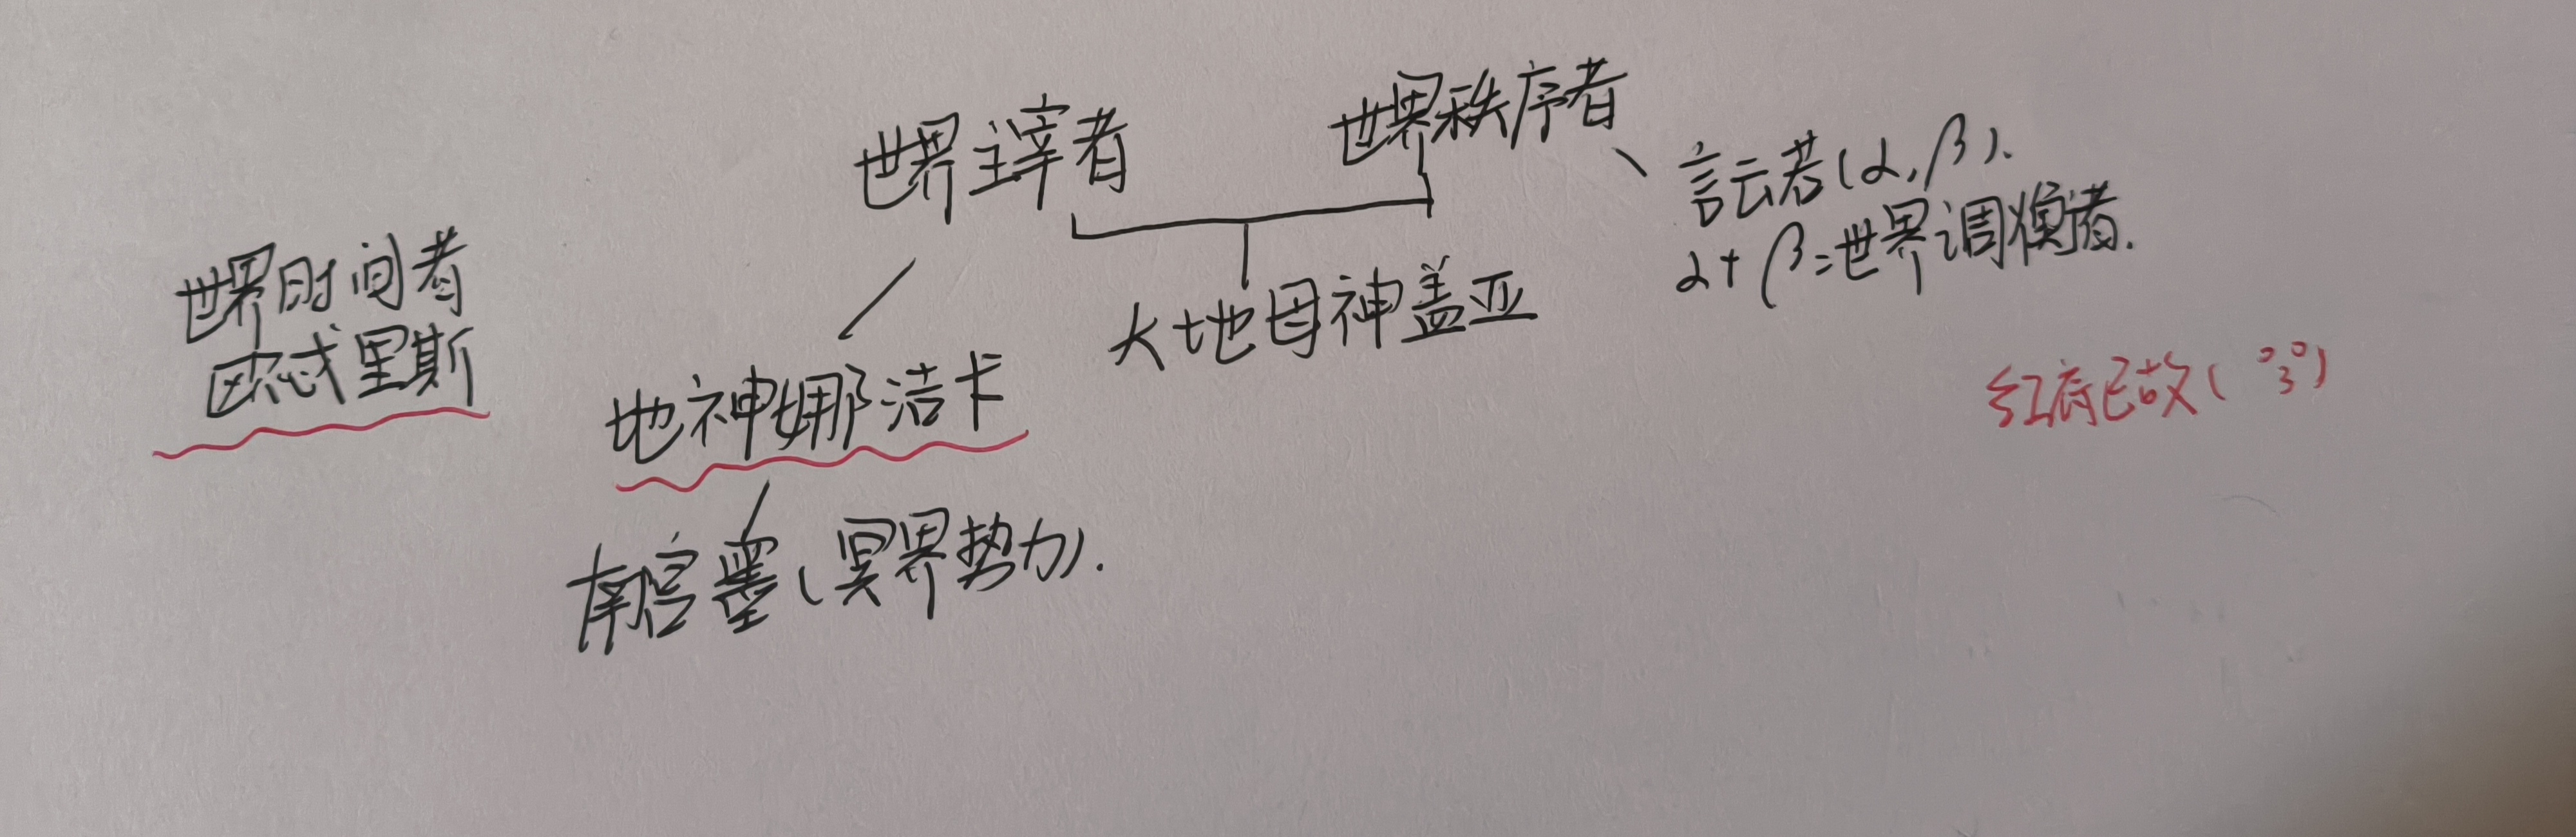 世界主宰者
世界秩序者
言云若(α,β).
α+β=世界调衡者.
世界时间者
欧忒里斯
大地母神盖亚
地神娜洁卡
红底已故( °3°)
南宫墨(冥界势力).